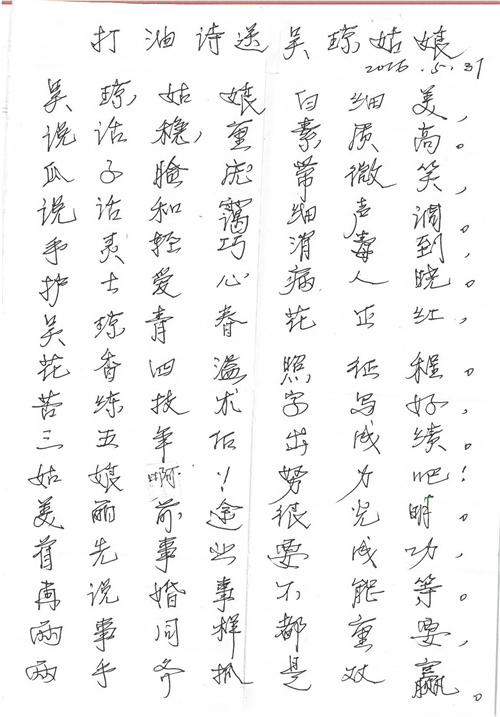 打油诗送吴琼姑娘
2016.5.31
吴琼姑娘白细美，
说话稳重素质高。
瓜子脸庞带微笑，
说话和蔼细声调。
手灵轻巧消毒到，
护士爱心病人晓。
吴琼青春花正红，
花香四溢照征程。
苦练技术字写好，
三五年后出成绩。
姑娘啊！努力吧！
美丽前途很光明。
首先事业要成功，
再说婚事不能等。
两事同样都重要，
两手齐抓是双赢。